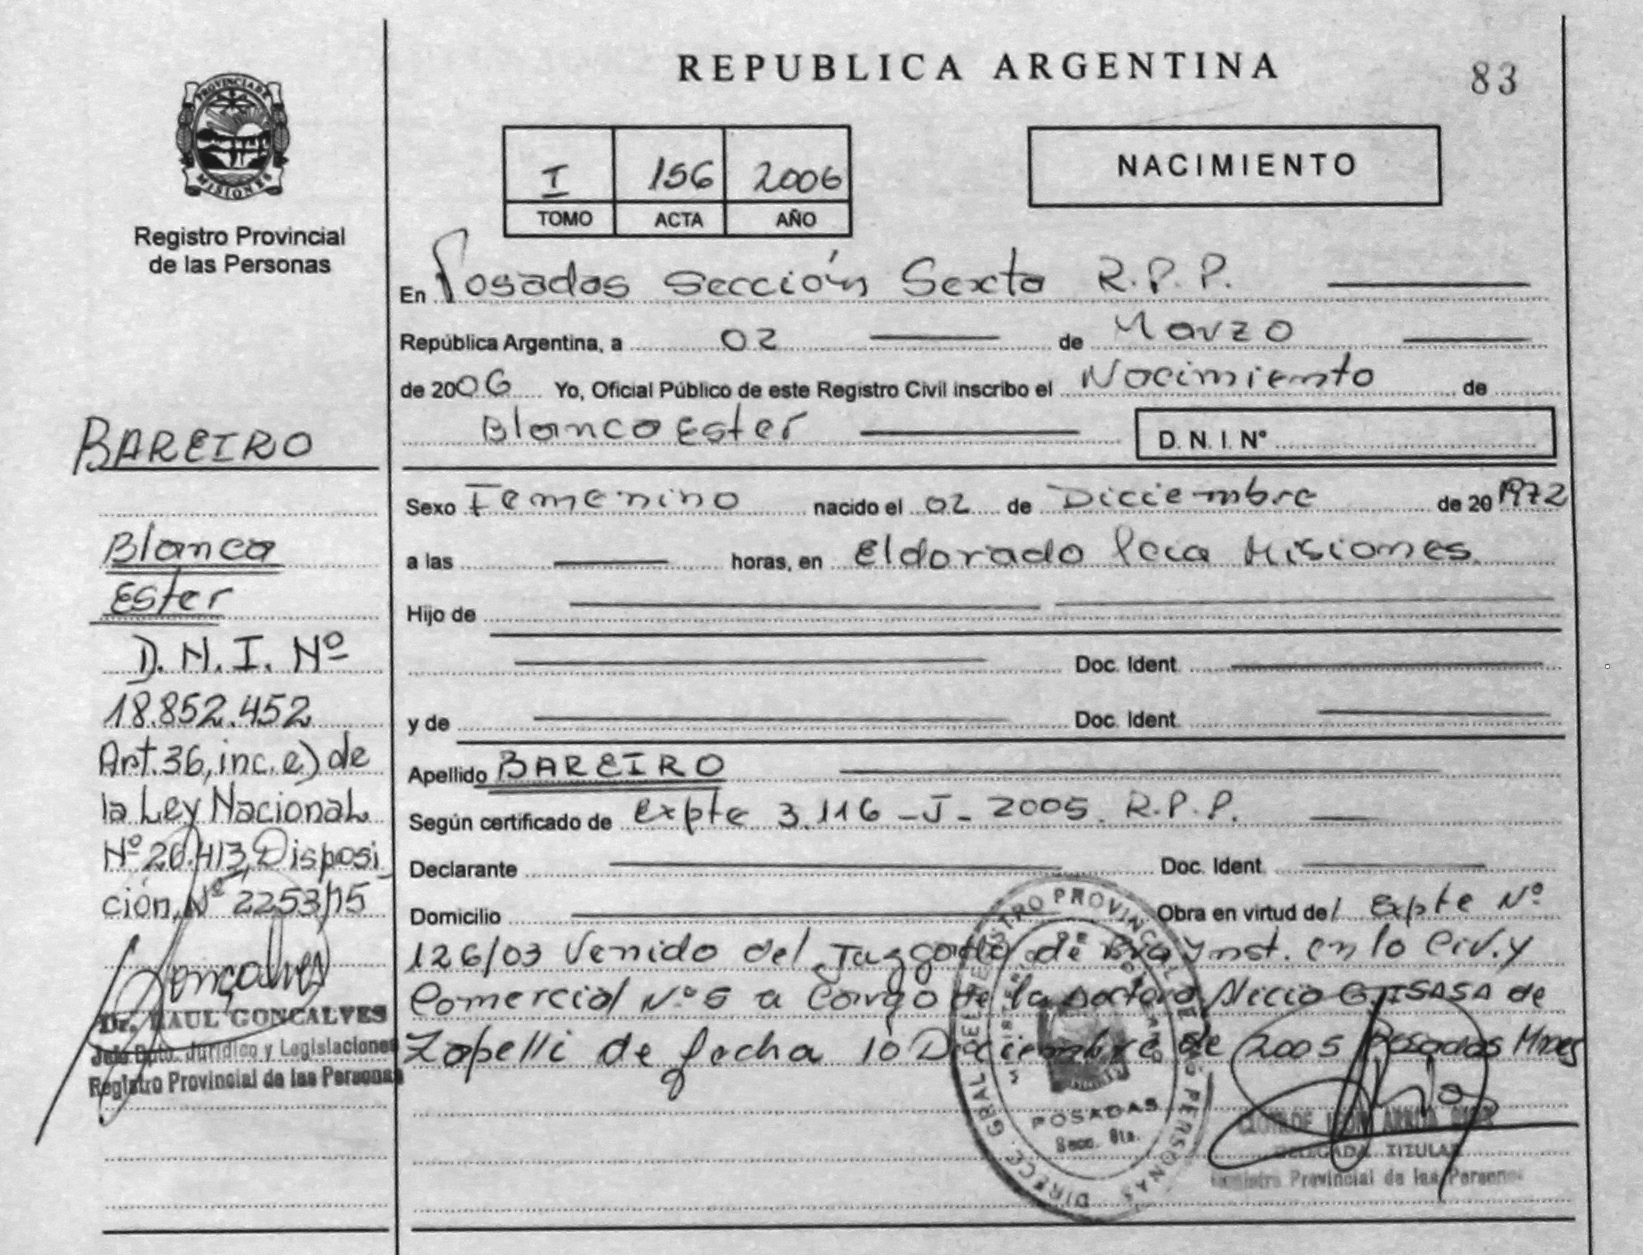 REPUBLICA ARGENTINA
83
PROVINCIA DE
MISIONES
Registro Provincial
de las Personas
I 156 2006
TOMO ACTA AÑO
NACIMIENTO
En Posadas Sección Sexta R.P.P.
República Argentina, a 02 de Marzo
de 2006 Yo, Oficial Público de este Registro Civil inscribo el Nacimiento de
Blanca Ester
D. N. I. Nº
Sexo Femenino nacido el 02 de Diciembre de 20 1972
a las horas, en Eldorado Pcia Misiones.
Hijo de
Doc. Ident.
y de Doc. Ident.
Apellido BAREIRO
Según certificado de Expte 3.116-J-2005. R.P.P.
Declarante Doc. Ident.
Domicilio Obra en virtud del Expte Nº
126/03 Venido del Juzgado de Inst. en lo Civ. y
Comercial Nº 5 a Cargo de la Doctora Alicia de
Zapelli de fecha 10 Diciembre de 2005 Posadas Mnes
BAREIRO
Blanca
Ester
D.N.I. Nº
18.852.452
Art. 36, inc. e) de
la Ley Nacional
Nº 20.413, Disposi
ción Nº 2253/15
Goncalves
Dr. RAUL GONCALVES
Jefe Dpto. Jurídico y Legislaciones
Registro Provincial de las Personas
POSADAS
Secc. 6ta.
DELEGADA TITULAR
Registro Provincial de las Personas